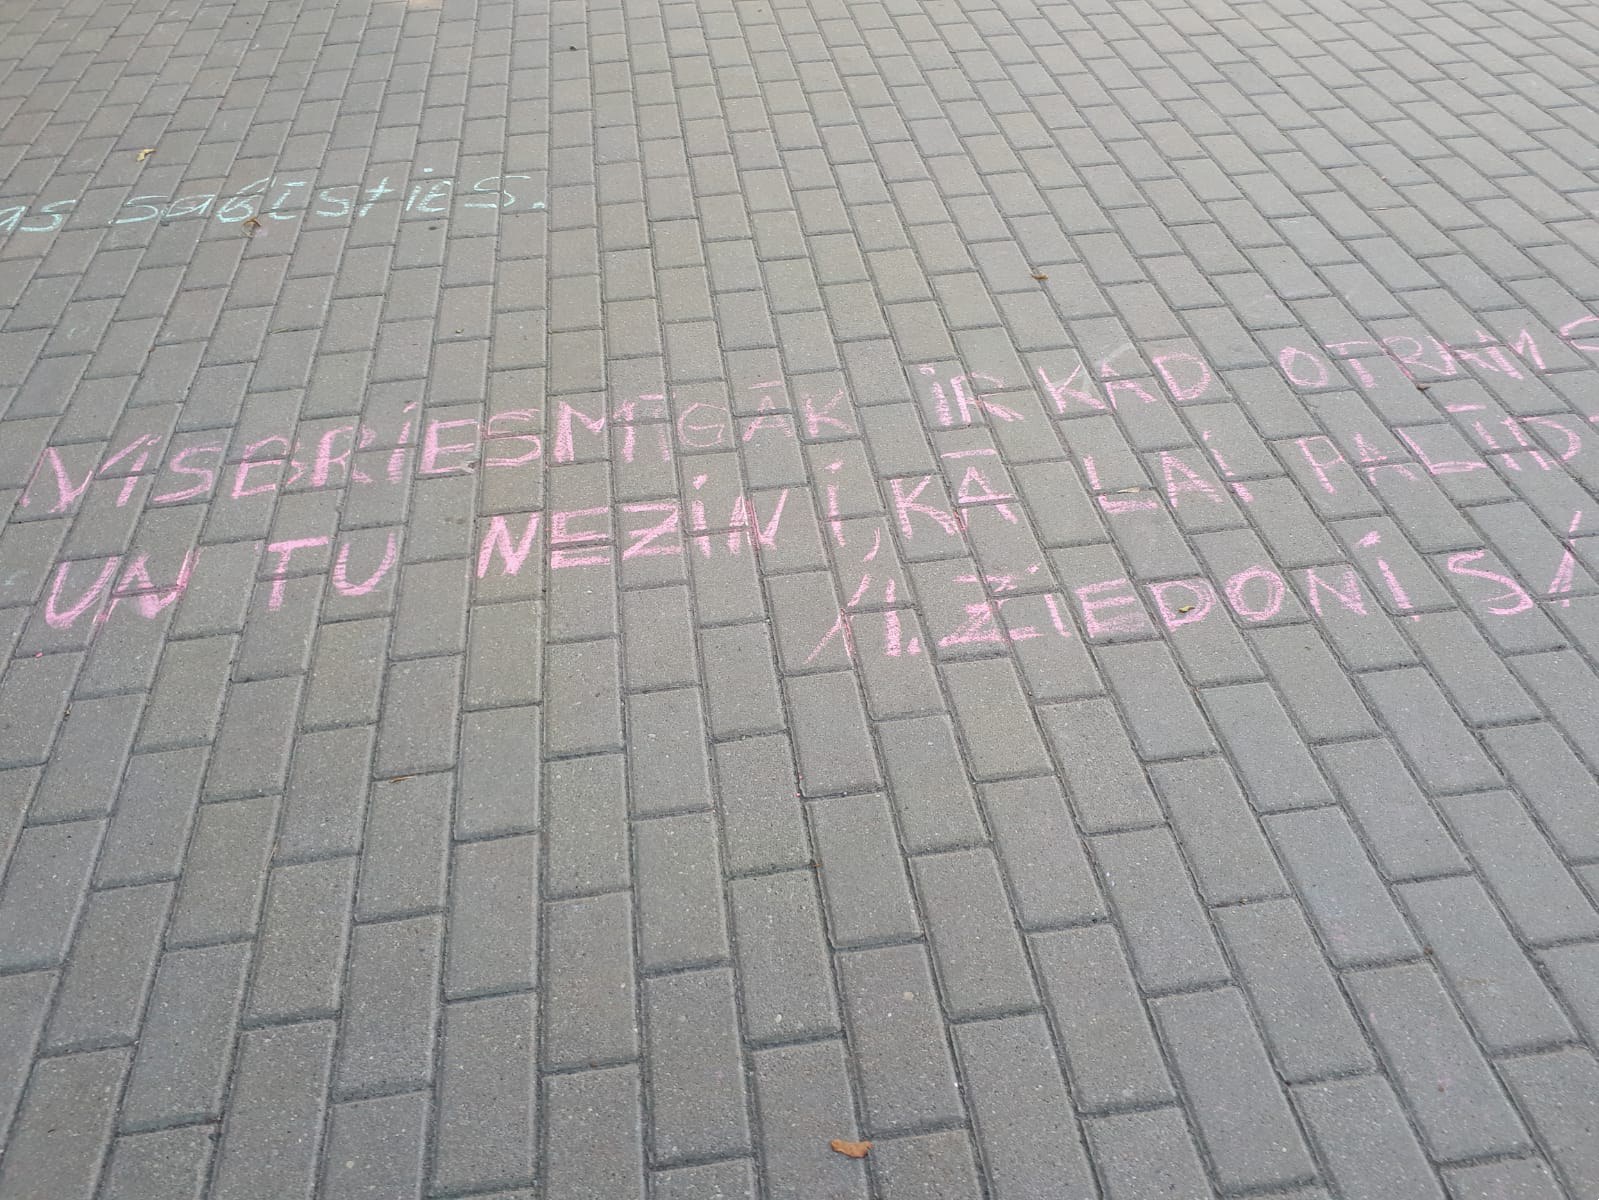 sabīsties.
VISBRIESMĪGĀK IR KAD OTRAM S
UN TU NEZINI, KĀ LAI PALĪDZ
/I. ZIEDONIS/